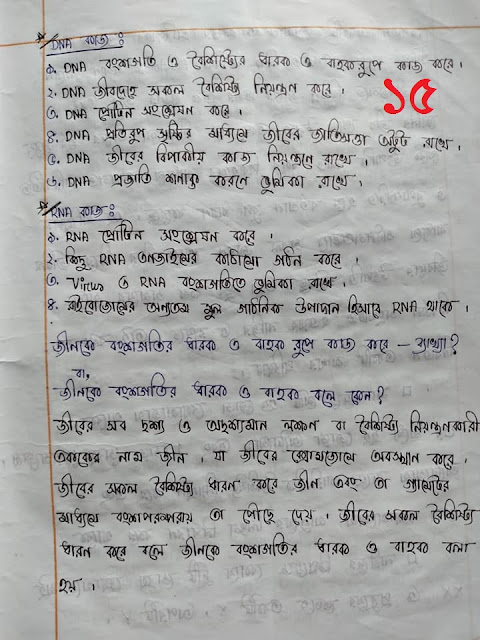 * DNA কাজ :
১. DNA বংশগতি ও বৈশিষ্ট্যের ধারক ও বাহকরূপে কাজ করে।
২. DNA জীবদেহে সকল বৈশিষ্ট্য নিয়ন্ত্রন করে।
১৫
৩. DNA প্রোটিন সংশ্লেষন করে।
৪. DNA প্রতিরূপ সৃষ্টির মাধ্যমে জীবের জাতিসত্তা অটুট রাখে।
৫. DNA জীবের বিপাকীয় কাজ নিয়ন্ত্রনে রাখে।
৬. DNA প্রজাতি শনাক্ত করনে ভূমিকা রাখে।
* RNA কাজ :
১. RNA প্রোটিন সংশ্লেষন করে।
২. কিছু RNA এনজাইমের কাঠামো গঠন করে।
৩. Virus ও RNA বংশগতিতে ভূমিকা রাখে।
৪. রাইবোজোমের অন্যতম মূল গাঠনিক উপাদান হিসাবে RNA থাকে।
জীনকে বংশগতির ধারক ও বাহক রূপে কাজ করে – ব্যাখ্যা?
বা,
জীনকে বংশগতির ধারক ও বাহক বলে কেন?
জীবের সব দৃশ্য ও অদৃশ্যমান লক্ষণ বা বৈশিষ্ট্য নিয়ন্ত্রণকারী
এককের নাম জীন। যা জীবের ক্রোমোজোমে অবস্থান করে।
জীবের সকল বৈশিষ্ট্য ধারন করে জীন এবং তা গ্যামেটের
মাধ্যমে বংশপরম্পরায় তা পৌছে দেয়। জীবের সকল বৈশিষ্ট্য
ধারন করে বলে জীনকে বংশগতির ধারক ও বাহক বলা
হয়।